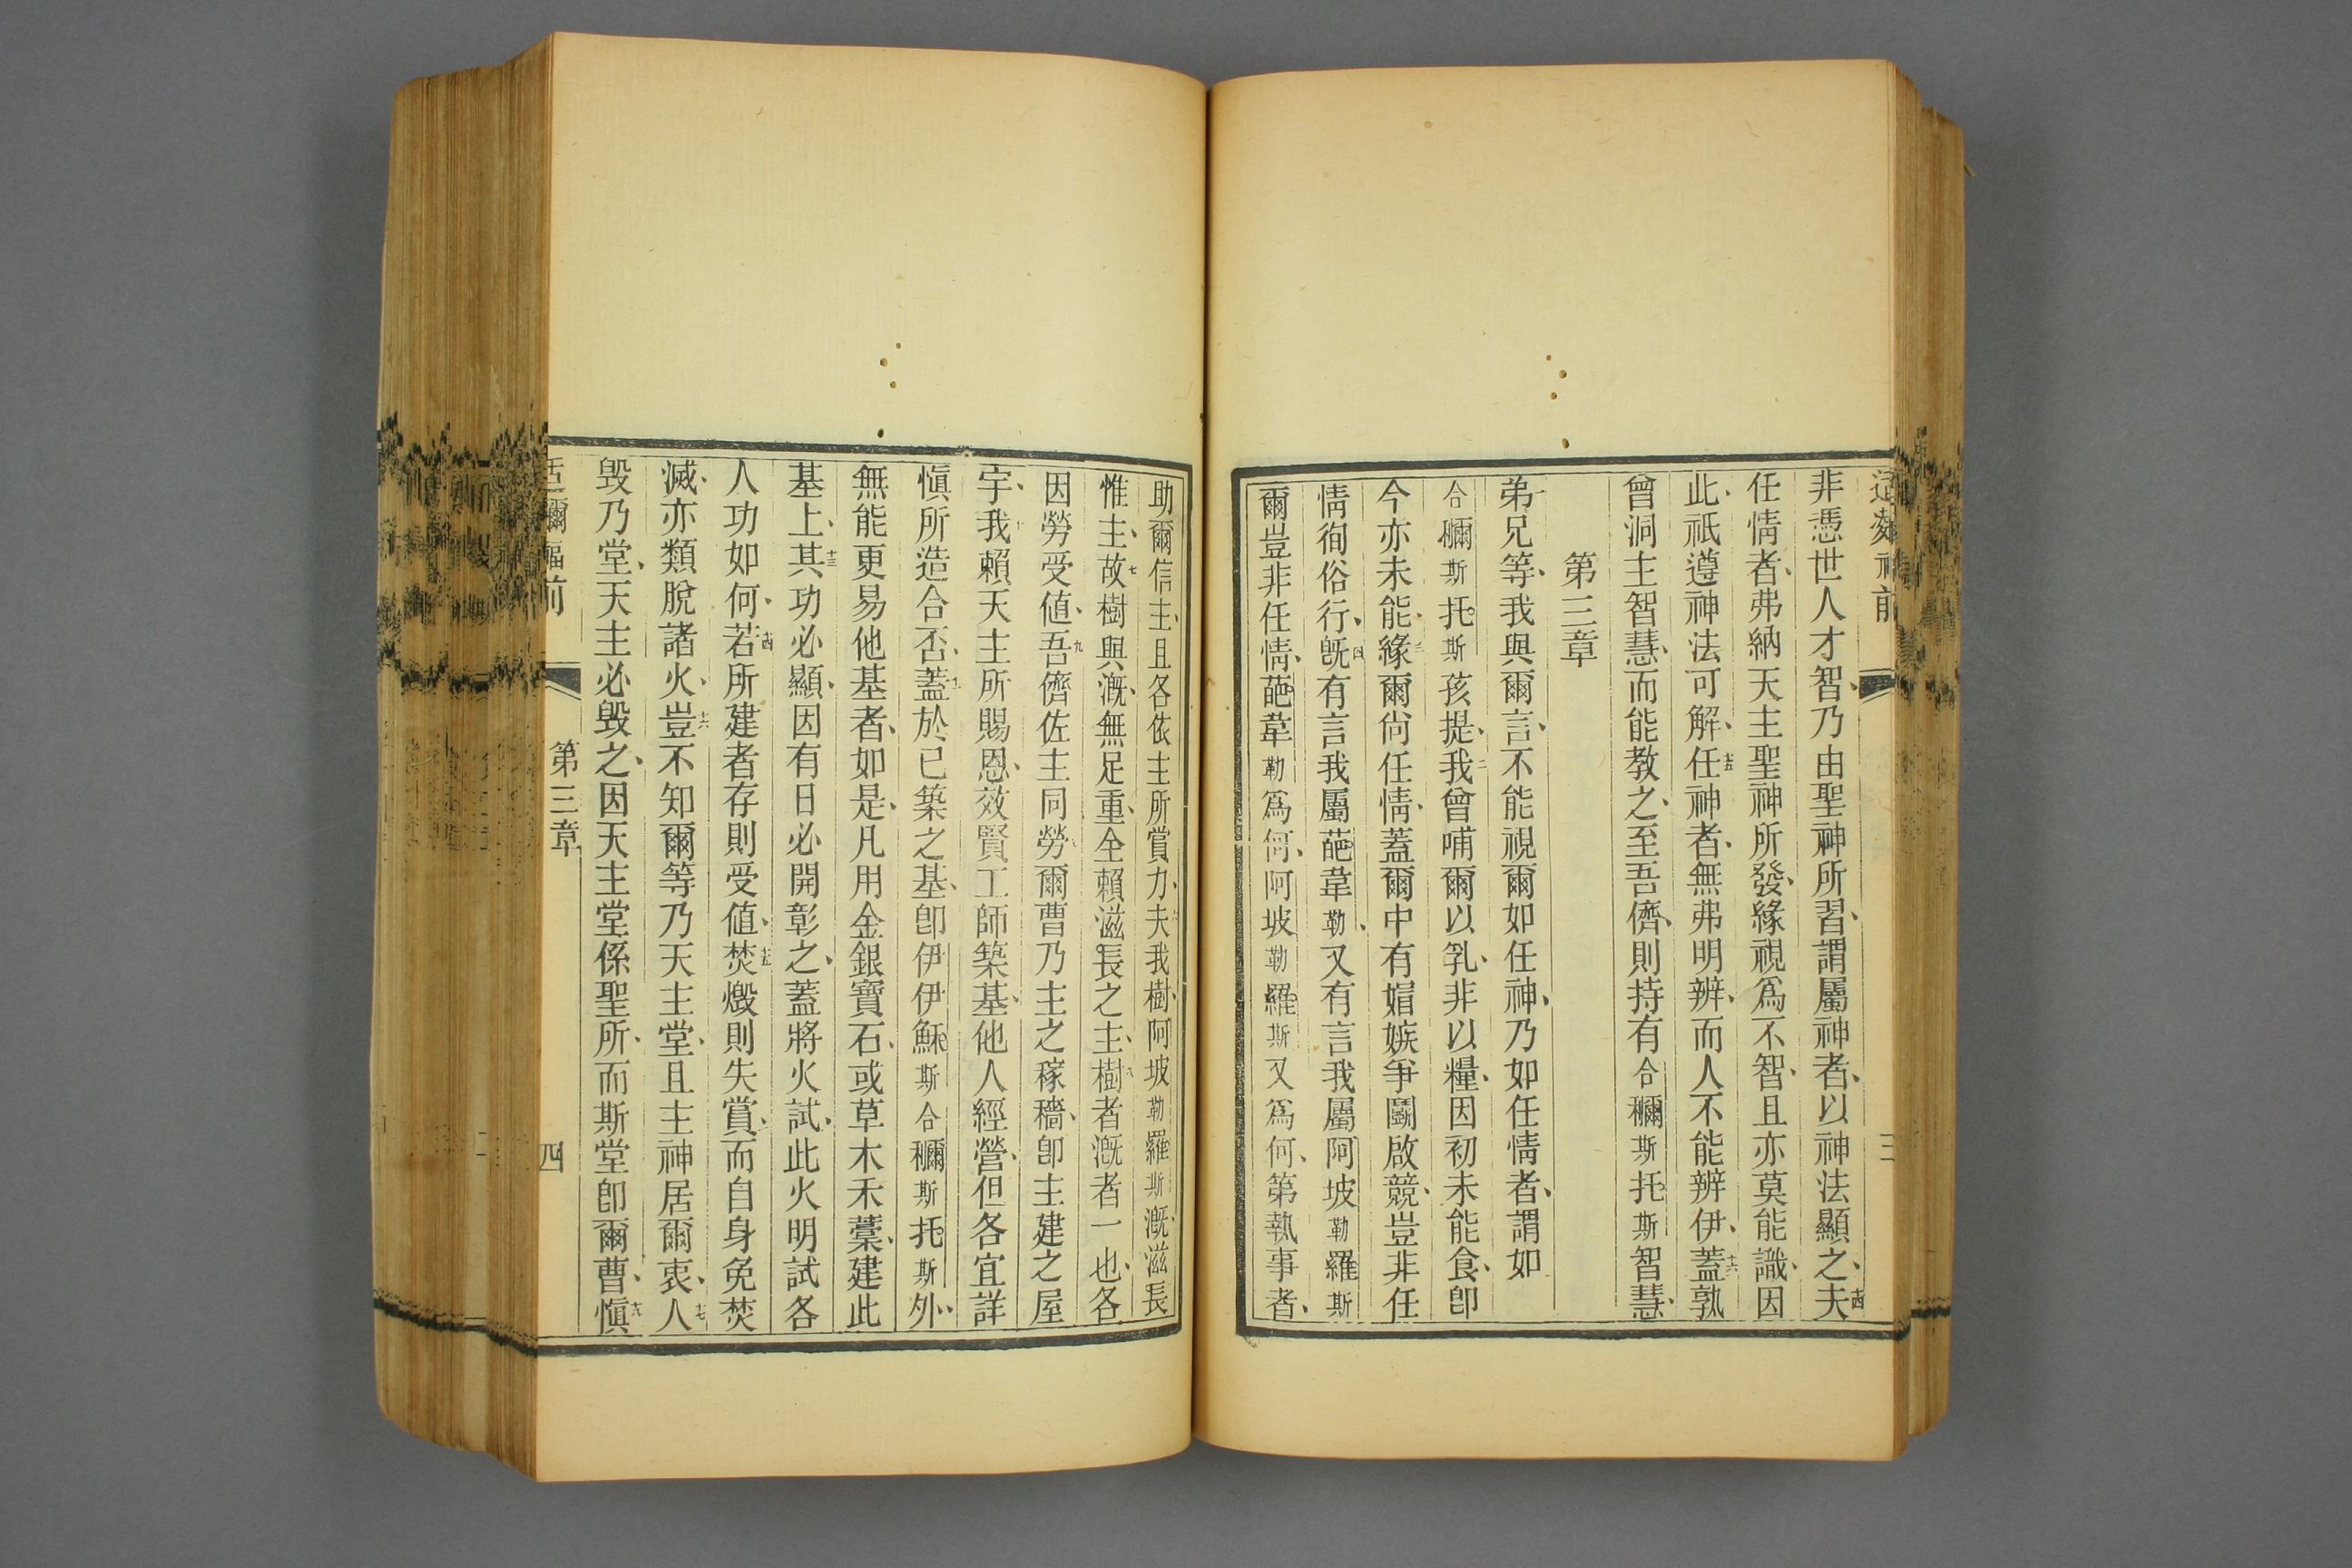 非憑世人才智、乃由聖神所習、謂屬神者、以神法顯之、夫十四
任情者、弗納天主聖神所發、緣視爲不智、且亦莫能識、因
此、祇遵神法可解、任十五神者、無弗明辨、而人不能辨伊、蓋十六孰
曾洞主智慧、而能教之、至吾儕、則持有合 斯托斯智慧、
第三章
弟兄等、我與爾言、不能視爾如任神、乃如任情者、謂如
合 斯托斯孩提、我二曾哺爾以乳、非以糧、因初未能食、卽
今亦未能、緣三爾尙任情、蓋爾中有媢嫉爭鬭啟競、豈非任
情徇俗行、旣四有言我屬葩韋勒、又有言我屬阿坡勒羅斯
爾豈非任情、葩韋勒爲何、阿坡勒羅斯又爲何、第執事者、
助爾信主、且各依主所賞力、夫我樹、阿坡勒羅斯漑、滋長
惟主、故七樹與漑、無足重、全賴滋長之主、樹八者漑者一也、各
因勞受値、吾九儕佐主同勞、爾曹乃主之稼穡、卽主建之屋
宇、我賴天主所賜恩、效賢工師築基、他人經營、但各宜詳
愼所造合否、蓋十一於已築之基、卽伊伊穌斯合 斯托斯外、
無能更易他基者、如是、凡用金銀寶石、或草木禾藁、建此
基上、其十三功必顯、因有日必開彰之、蓋將火試、此火明試各
人功如何、若十四所建者存則受値、焚十五燬則失賞、而自身免焚
滅、亦類脫諸火、豈十六不知爾等乃天主堂、且主神居爾衷、人十七
毀乃堂、天主必毀之、因天主堂係聖所、而斯堂卽爾曹、愼十八
第三章 四